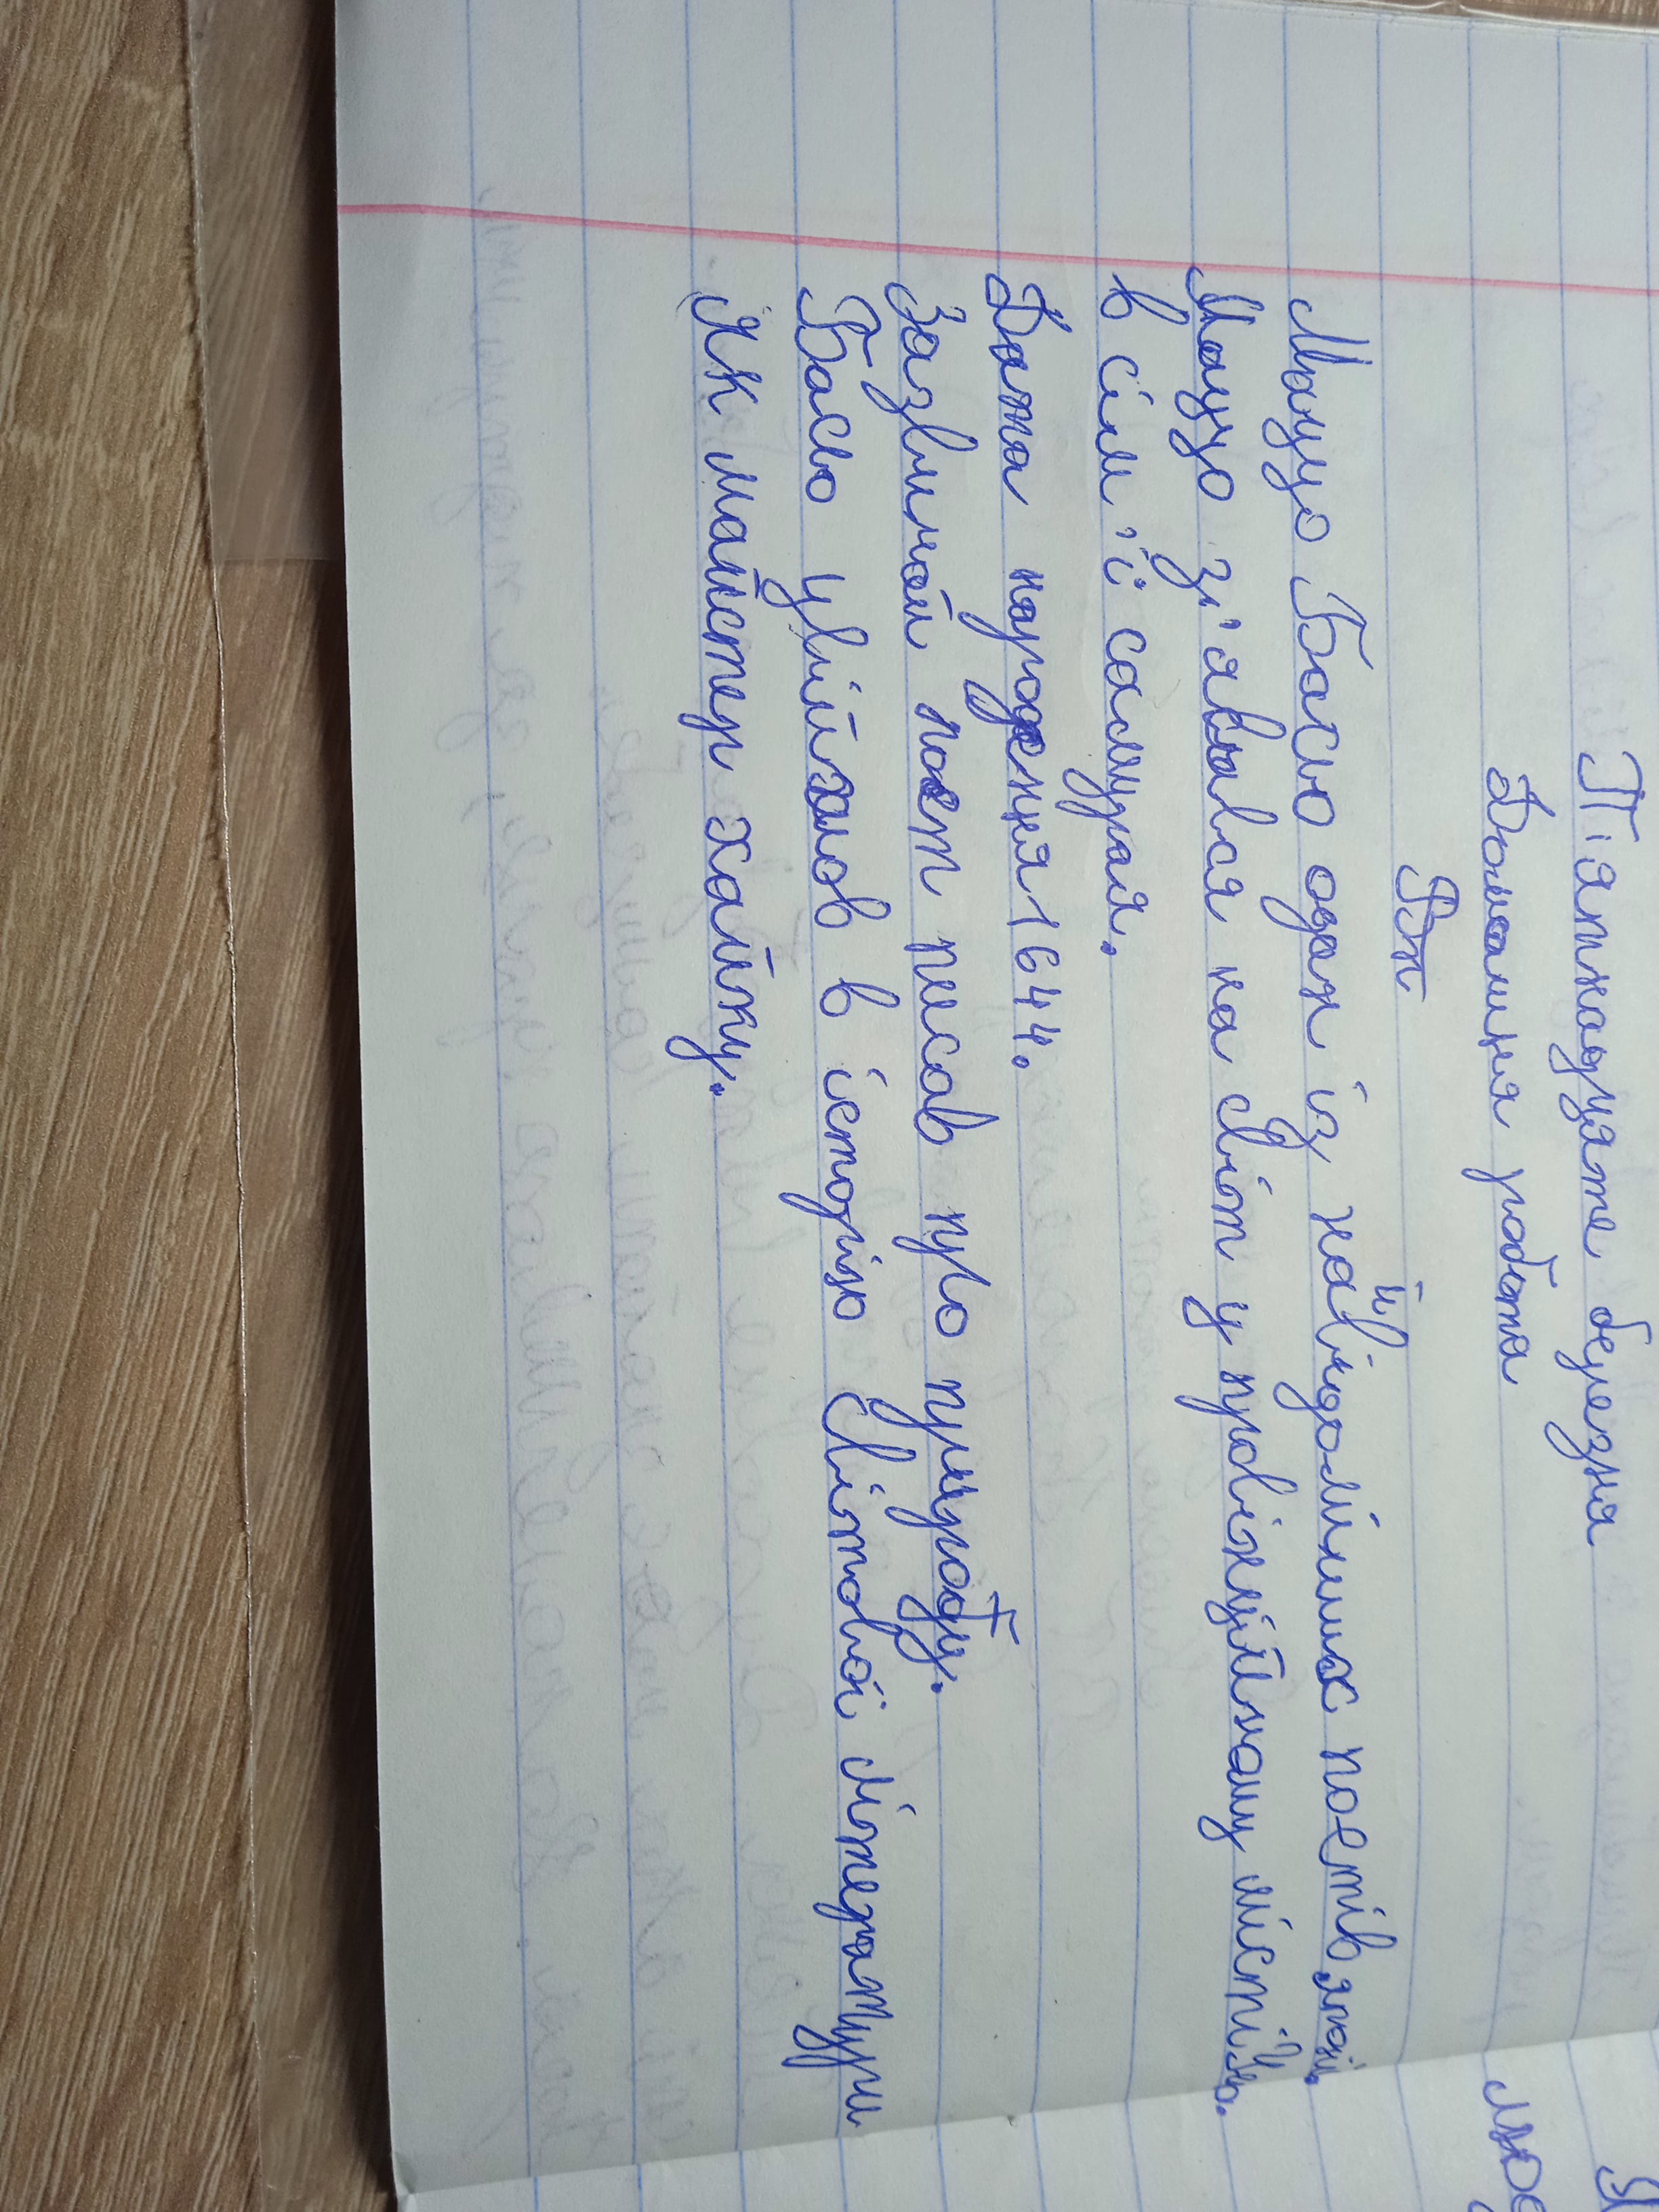 П'ятнадцяте березня
Домашня робота
Вп
Мацуо Басьо один із найвідоміших поетів япон.
Мацуо зʼявився на світ у провінційному містіі
в сімʼї самурая.
Дата народення 1644.
Зазвичай поет писав про природу.
Басьо увійшов в історію світової літератури
як майстер хайку.